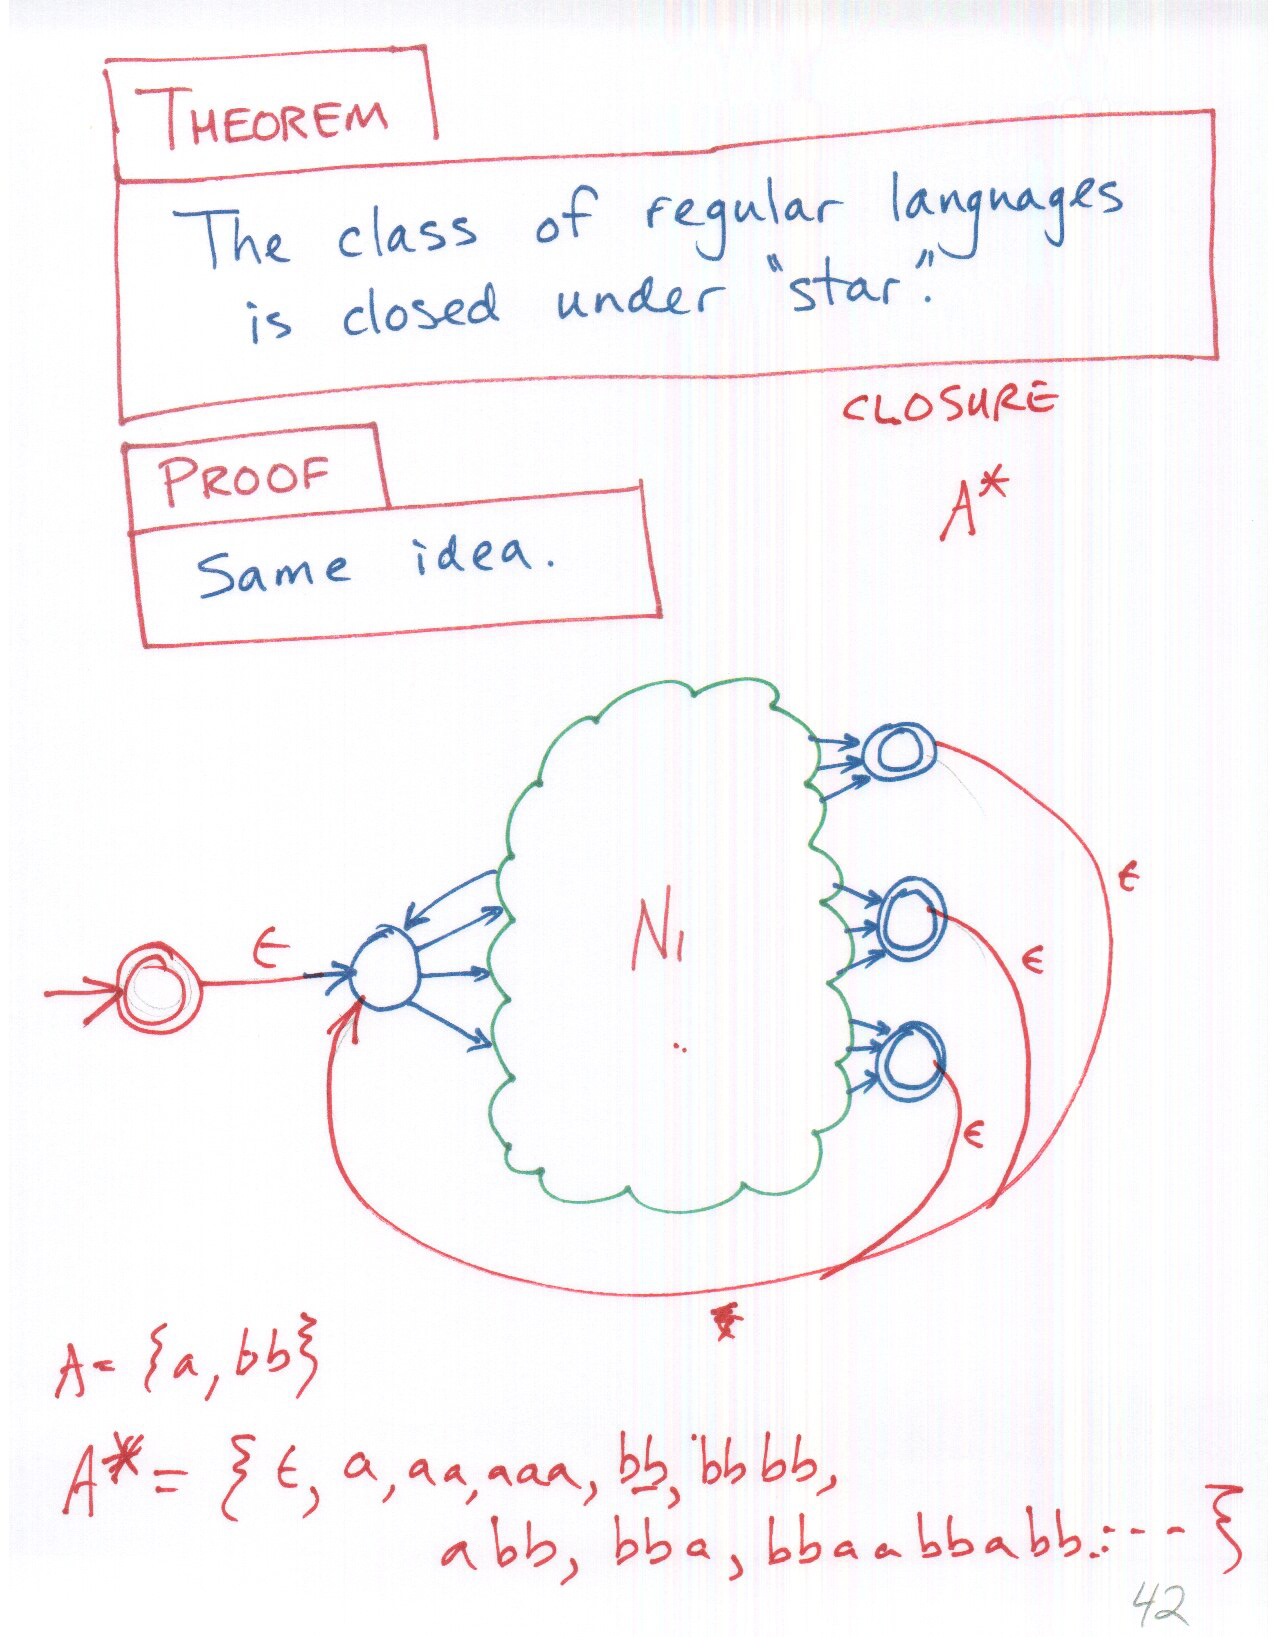 THEOREM
The class of regular languages
is closed under "star".
CLOSURE
PROOF
A*
Same idea.
ϵ
N₁
ϵ
ϵ
ϵ
*
A = {a, bb}
A* = {ϵ, a, aa, aaa, bb, bbbb,
abb, bba, bbaabbabb...---}
42